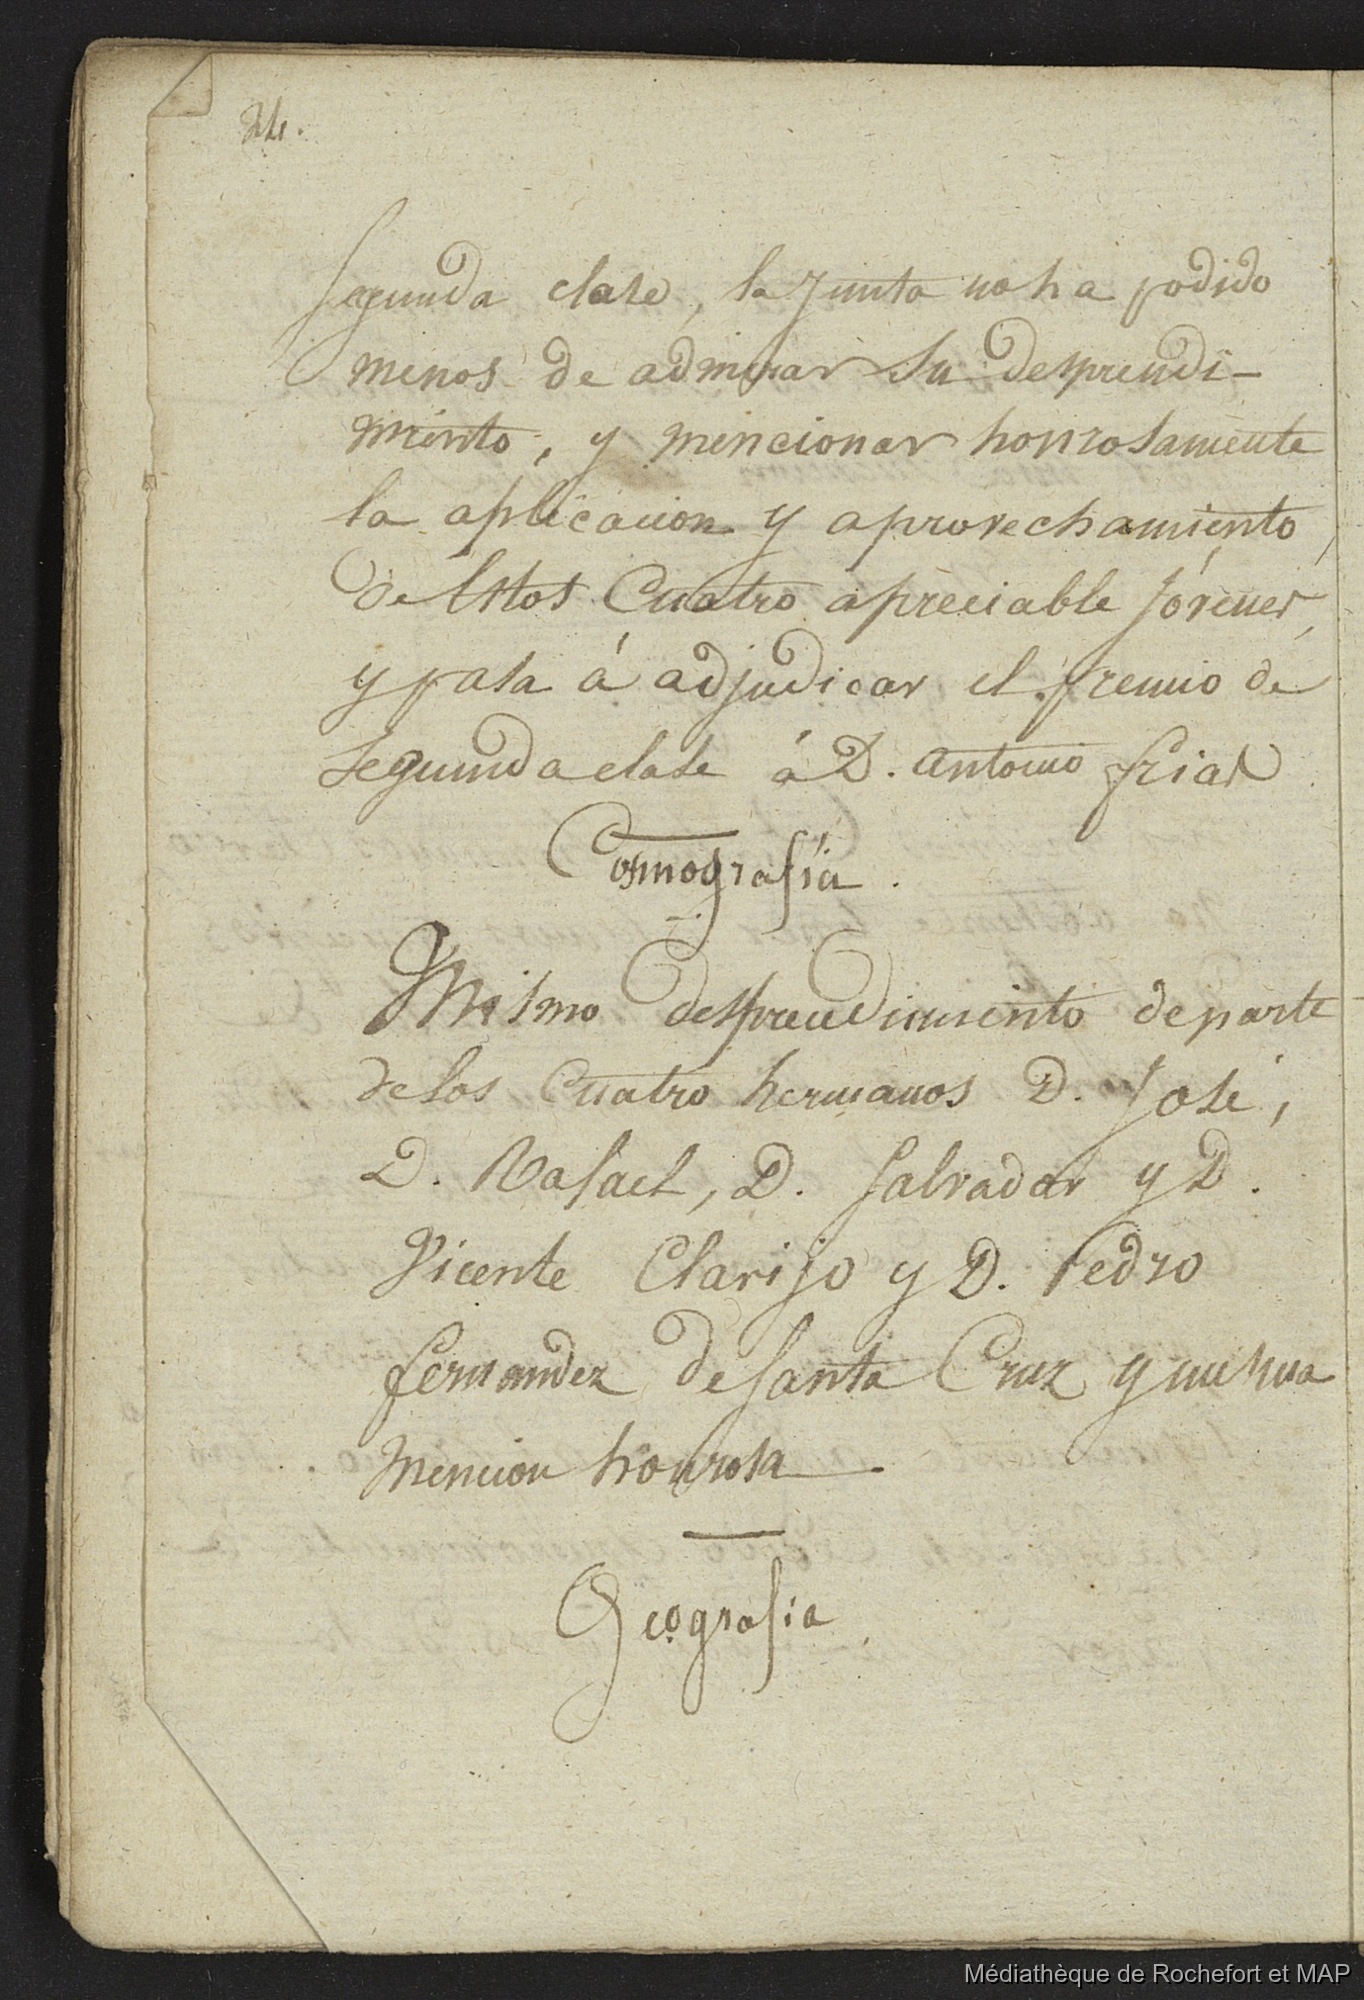 24.
Segunda clase, la Junta no ha podido
menos de admirar su desprendi-
miento, y mencionar honrosamente
la aplicacion y aprovechamiento
de Estos Cuatro apreciable Jóvenes,
y pasa á adjudicar el premio de
segunda clase á D. Antonio frias
Cosmografía.
Mismo desprendimiento de parte
de los Cuatro hermanos D. José,
D. Rafael, D. Salvador y D.
Vicente Clarijo y D. Pedro
fernandez de Santa Cruz y misma
mencion honrosa
Geografia
Médiathèque de Rochefort et MAP